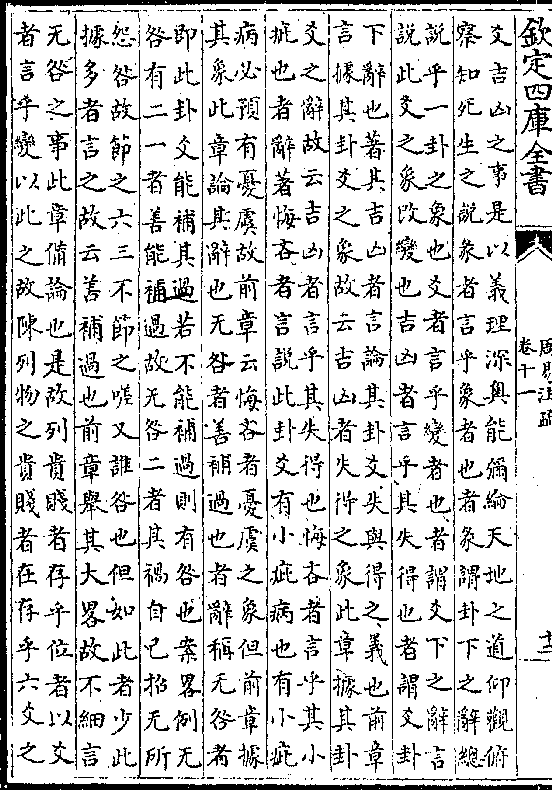 欽定四庫全書
周易注疏
卷十一
十二
爻吉凶之事是以義理深奥能彌綸天地之道仰觀俯
察知死生之說彖者言乎象者也者彖謂卦下之辭總
說乎一卦之象也爻者言乎變者也者謂爻下之辭言
說此爻之象改變也吉凶者言乎其失得也者謂爻卦
下辭也著其吉凶者言論其卦爻失與得之義也前章
言據其卦爻之象故云吉凶者失得之象此章據其卦
爻之辭故云吉凶者言乎其失得也悔吝者言乎其小
疵也者辭著悔吝者言說此卦爻有小疵病也有小疵
病必預有憂虞故前章云悔吝者憂虞之象但前章據
其象此章論其辭也无咎者善補過也者辭稱无咎者
即此卦爻能補其過若不能補過則有咎也案畧例无
咎有二一者善能補過故无咎二者其禍自己招无所
怨咎故節之六三不節之嗟又誰咎也但如此者少此
據多者言之故云善補過也前章舉其大畧故不細言
无咎之事此章備論也是故列貴賤者存乎位者以爻
者言乎變以此之故陳列物之貴賤者在存乎六爻之